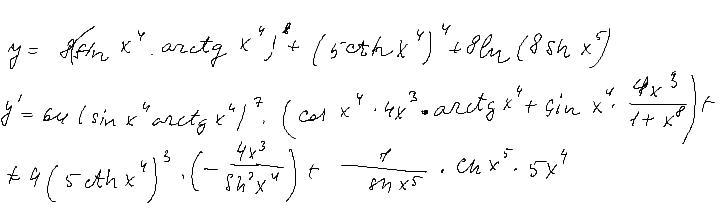 y = 8(sin x⁴ · arctg x⁴)⁸ + (5 cth x⁴)⁴ + 8ln (8 sh x⁵)
y' = 64 (sin x⁴ arctg x⁴)⁷ · (cos x⁴ · 4x³ · arctg x⁴ + sin x⁴ · 4x³/(1 + x⁸)) +
+ 4 (5 cth x⁴)³ · (- 4x³/(sh² x⁴)) + 1/(sh x⁵) · ch x⁵ · 5x⁴